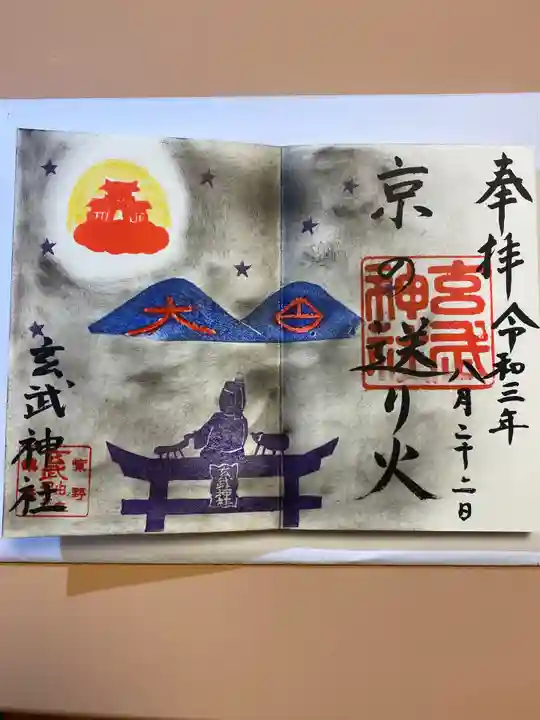 奉拝
令和三年
八月二十二日
京の送り火
玄武神社
大
玄武神社
玄武神社
紫野